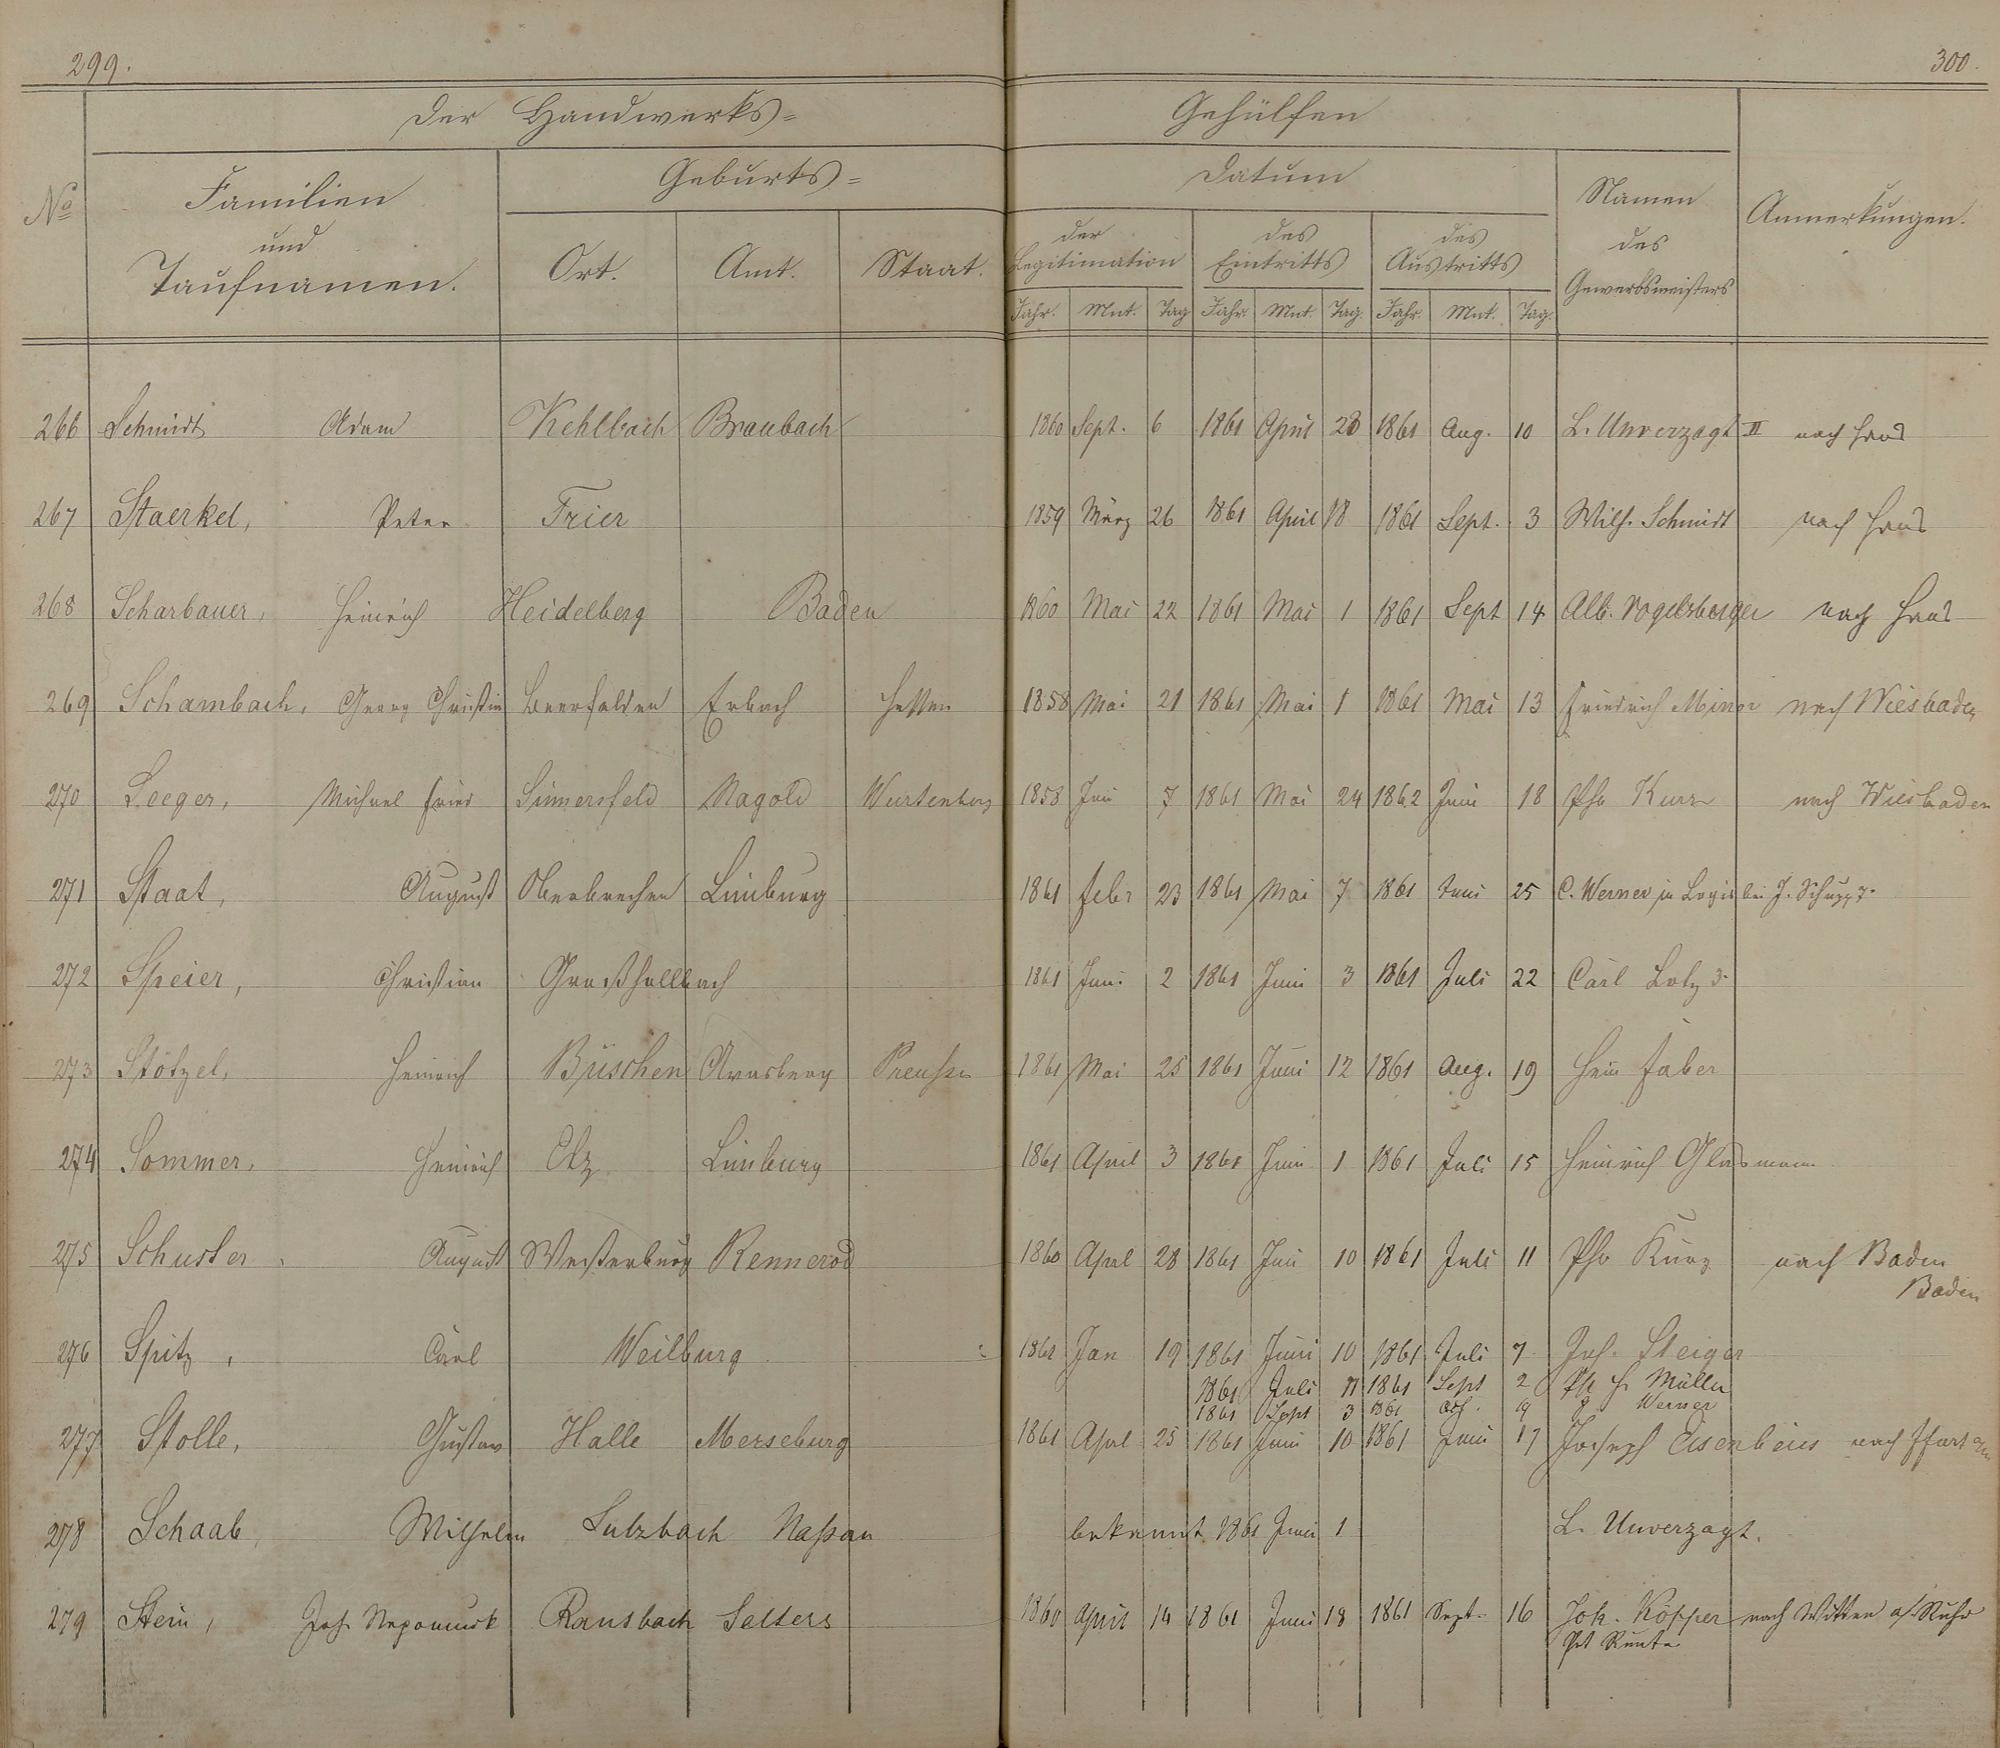 299.
300.
Der Handwerks=
Gehülfen
No
Familien
und
Taufnamen.
Geburts=
Ort.
Amt.
Staat.
Datum
der
Legitimation
des
Eintritts
des
Austritts
Jahr. Mnt. Tag Jahr. Mnt. Tag. Jahr. Mnt. Tag.
Namen
des
Gewerbsmeisters
Anmerkungen.
266 Schmidt Adam Kehlbach Braubach 1860 Sept. 6 1861 April 28 1861 Aug. 10 L. Unverzagt II nach Haus
267 Staerkel, Peter Trier 1859 März 26 1861 April 18 1861 Sept. 3 Wilh. Schmidt nach Haus
268 Scharbauer, Heinrich Heidelberg Baden 1860 Mai 22 1861 Mai 1 1861 Sept 14 Alb. Vogelsberger nach Haus
269 Schambach, Georg Christian Beerfelden Erbach Hessen 1858 Mai 21 1861 Mai 1 1861 Mai 13 Friedrich Minor nach Wiesbaden
270 Seeger, Michael Fried Simmersfeld Nagold Wurtenberg 1858 Juni 7 1861 Mai 24 1862 Juni 18 Phr Kurz nach Wiesbaden
271 Staat, August Oberbrechen Limburg 1861 Febr 23 1861 Mai 7 1861 Juni 25 C. Werner in Logis bei J. Schupp
272 Speier, Christian Großhollbach 1861 Juni 2 1861 Juni 3 1861 Juli 22 Carl Lotz 3.
273 Stötzel, Heinrich Büschen Arnsberg Preußen 1861 Mai 25 1861 Juni 12 1861 Aug. 19 Hein Faber
274 Sommer, Heinrich Elz Limburg 1861 April 3 1861 Juni 1 1861 Juli 15 Heinrich Glasmann
275 Schuster, August Westerburg Rennerod 1860 April 28 1861 Juni 10 1861 Juli 11 Phr Kurz nach Baden
Baden
276 Spitz, Carl Weilburg 1861 Jan 19 1861 Juni 10 1861 Juli 7 Joh. Steiger
1861 Juli 11 1861 Sept 2 H. Müller
1861 Sept 3 1861 19 Werner
277 Stolle, Gustav Halle Merseburg 1861 April 25 1861 Juni 10 1861 Juni 17 Joseph Eisenbeis nach
278 Schaab, Wilhelm Sulzbach Naßau bekannt 1861 Juni 1 L. Unverzagt.
279 Stein, Joh. Nepomuck Ransbach Selters 1860 April 14 1861 Juni 18 1861 Sept. 16 Joh. Köpper nach Witten a/Ruhr